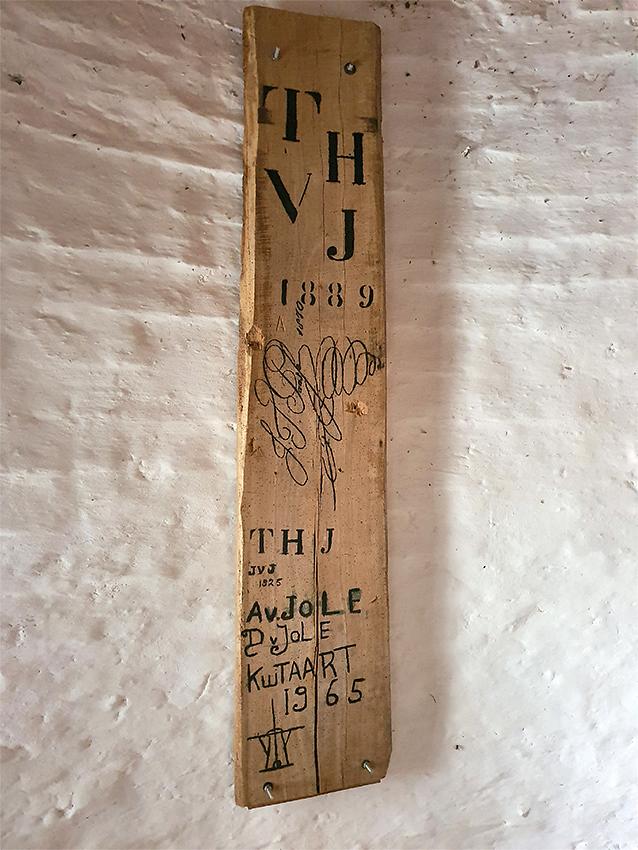 T H
V J
1889
THJ
JVJ
1825
Av.JOLE
DvJOLE
KWTAART
1965